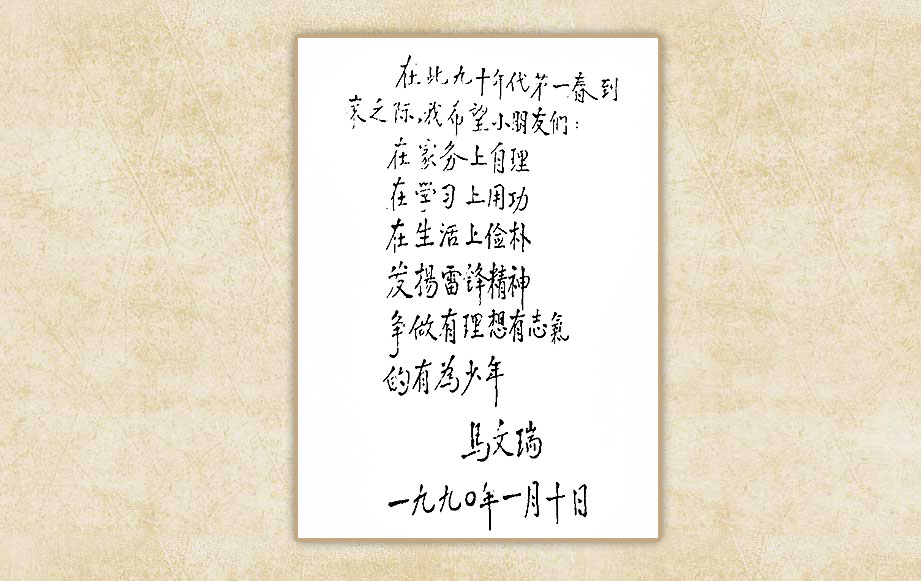 在此九十年代第一春到
来之际,我希望小朋友们:
在家务上自理
在学习上用功
在生活上俭朴
发揚雷锋精神
争做有理想有志氣
的有為少年
马文瑞
一九九〇年一月十日